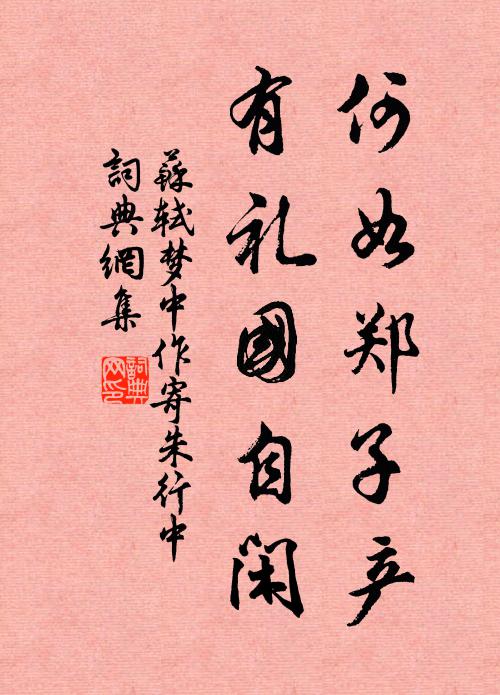 何如郑子产
有礼國自闲
蘇轼梦中作寄朱行中
詞典網集
詞典网印